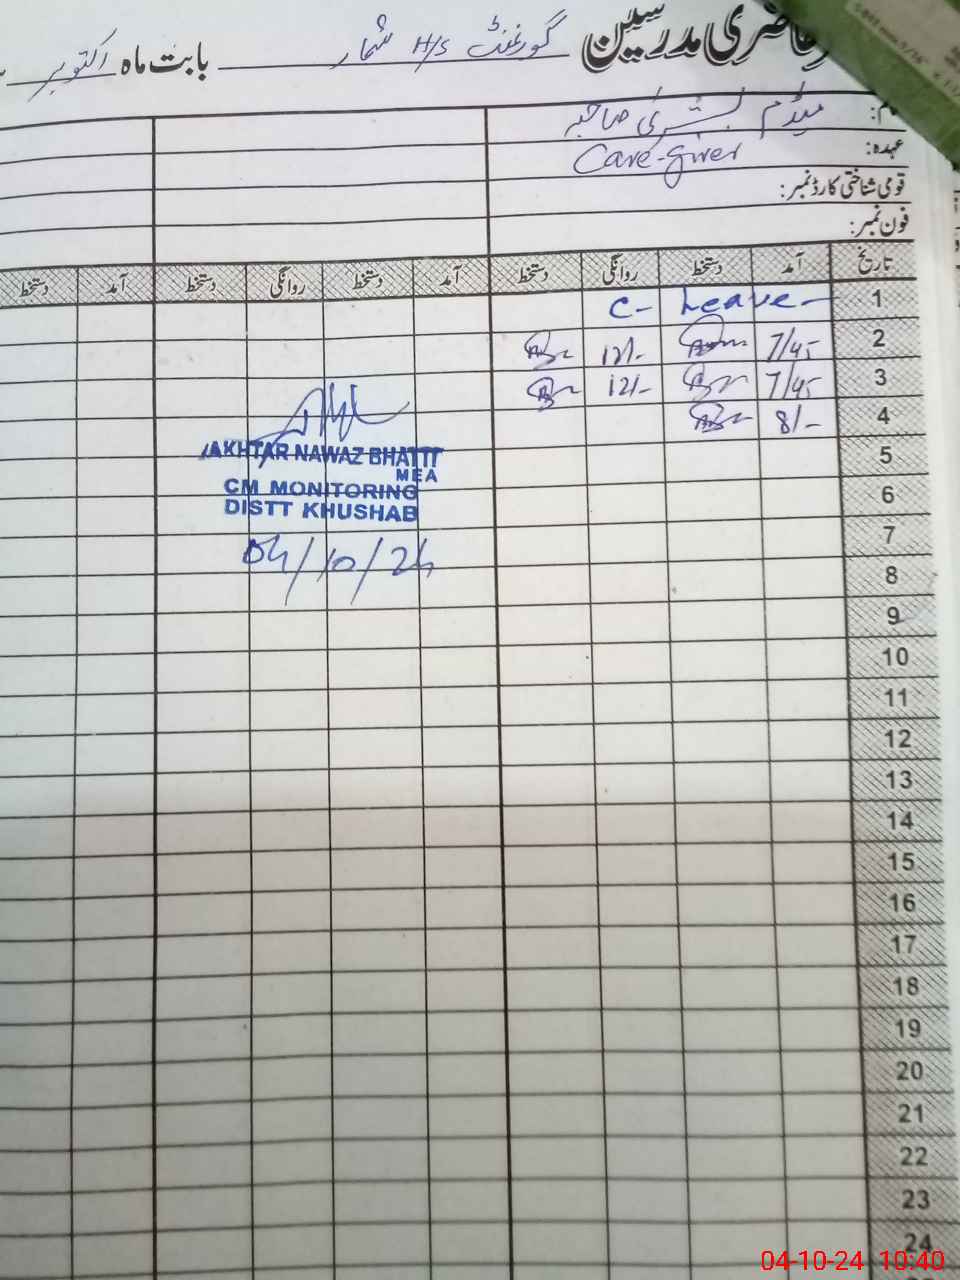 حاضری مدرسین گورنمنٹ H/S شمار بابت ماہ اکتوبر
نام: میڈم بشریٰ صاحبہ
عہدہ: Care-giver
قومی شناختی کارڈ نمبر:
فون نمبر:
تاریخ آمد دستخط روانگی دستخط آمد دستخط روانگی دستخط آمد دستخط
1 C- Leave-
2 7/45 12/-
3 7/45 12/-
4 8/-
AKHTAR NAWAZ BHATTI
MEA
CM MONITORING
DISTT KHUSHAB
04/10/24
5
6
7
8
9
10
11
12
13
14
15
16
17
18
19
20
21
22
23
24
04-10-24 10:40